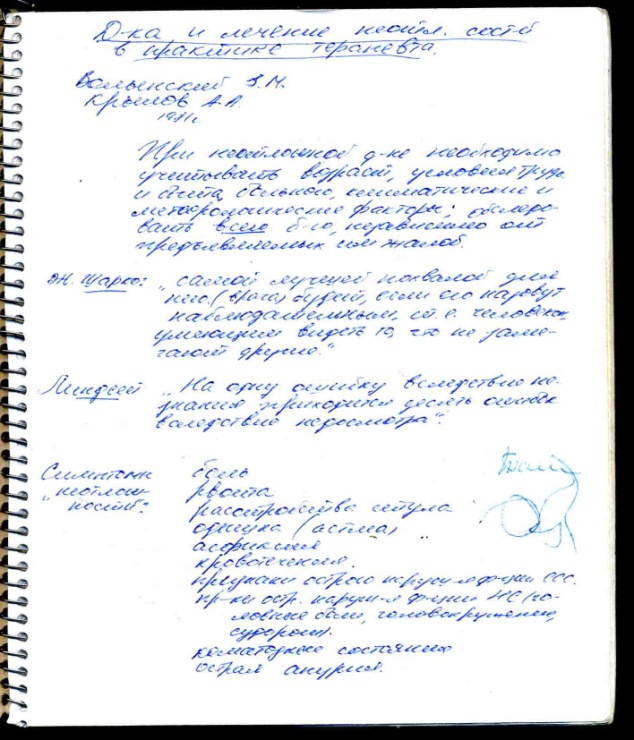 Д-ка и лечение неотл. сост-й
в практике терапевта.
Волынский З.М.
Крылов А.А.
1971г.
При неотложной д-ке необходимо
учитывать возраст, условия труда
и быта, больного, климатические и
метеорологические факторы; обследо-
вать всего б-го, независимо от
предъявляемых им жалоб.
Ж. Шарко: "самой лучшей похвалой для
него (врача) будет, если его назовут
наблюдательным, т.е. человеком
умеющим видеть то, что не заме-
чают другие."
Линдсей "На одну ошибку вследствие не-
знания приходится десять ошибок
вследствие недосмотра".
Симптомы боль
"неотлож- рвота
ности": расстройства стула
одышка (астма)
асфиксия
кровотечения.
признаки острого наруш-я ф-ции ССС.
пр-ки остр. наруш-я ф-ции НС (го-
ловные боли, головокружение,
судороги).
коматозные состояния
острая анурия.